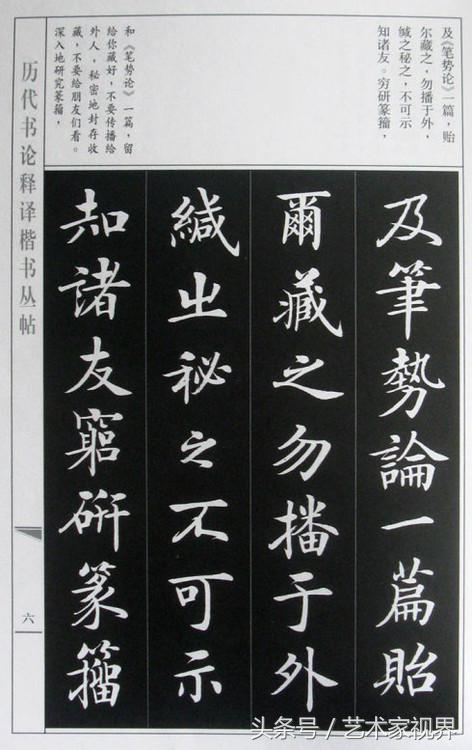 及《笔势论》一篇，贻
尔藏之，勿播于外，
缄之秘之，不可示
知诸友。穷研篆籀，
和《笔势论》一篇，留
给你藏好，不要传播给
外人，秘密地封存收
藏，不要给朋友们看。
深入地研究篆籀，
及筆勢論一篇貽
爾藏之勿播于外
緘之秘之不可示
知諸友窮研篆籀
历代书论释译楷书丛帖
六
头条号／艺术家视界